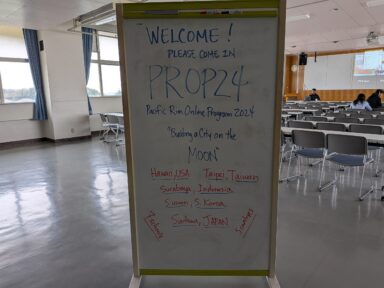 WELCOME!
PLEASE COME IN
PROP24
Pacific Rim Online Program 2024
"Building a City on the
MOON"
Hawaii, USA Taipei, Taiwan
Surabaya, Indonesia
Suwon, S. Korea
JAPAN